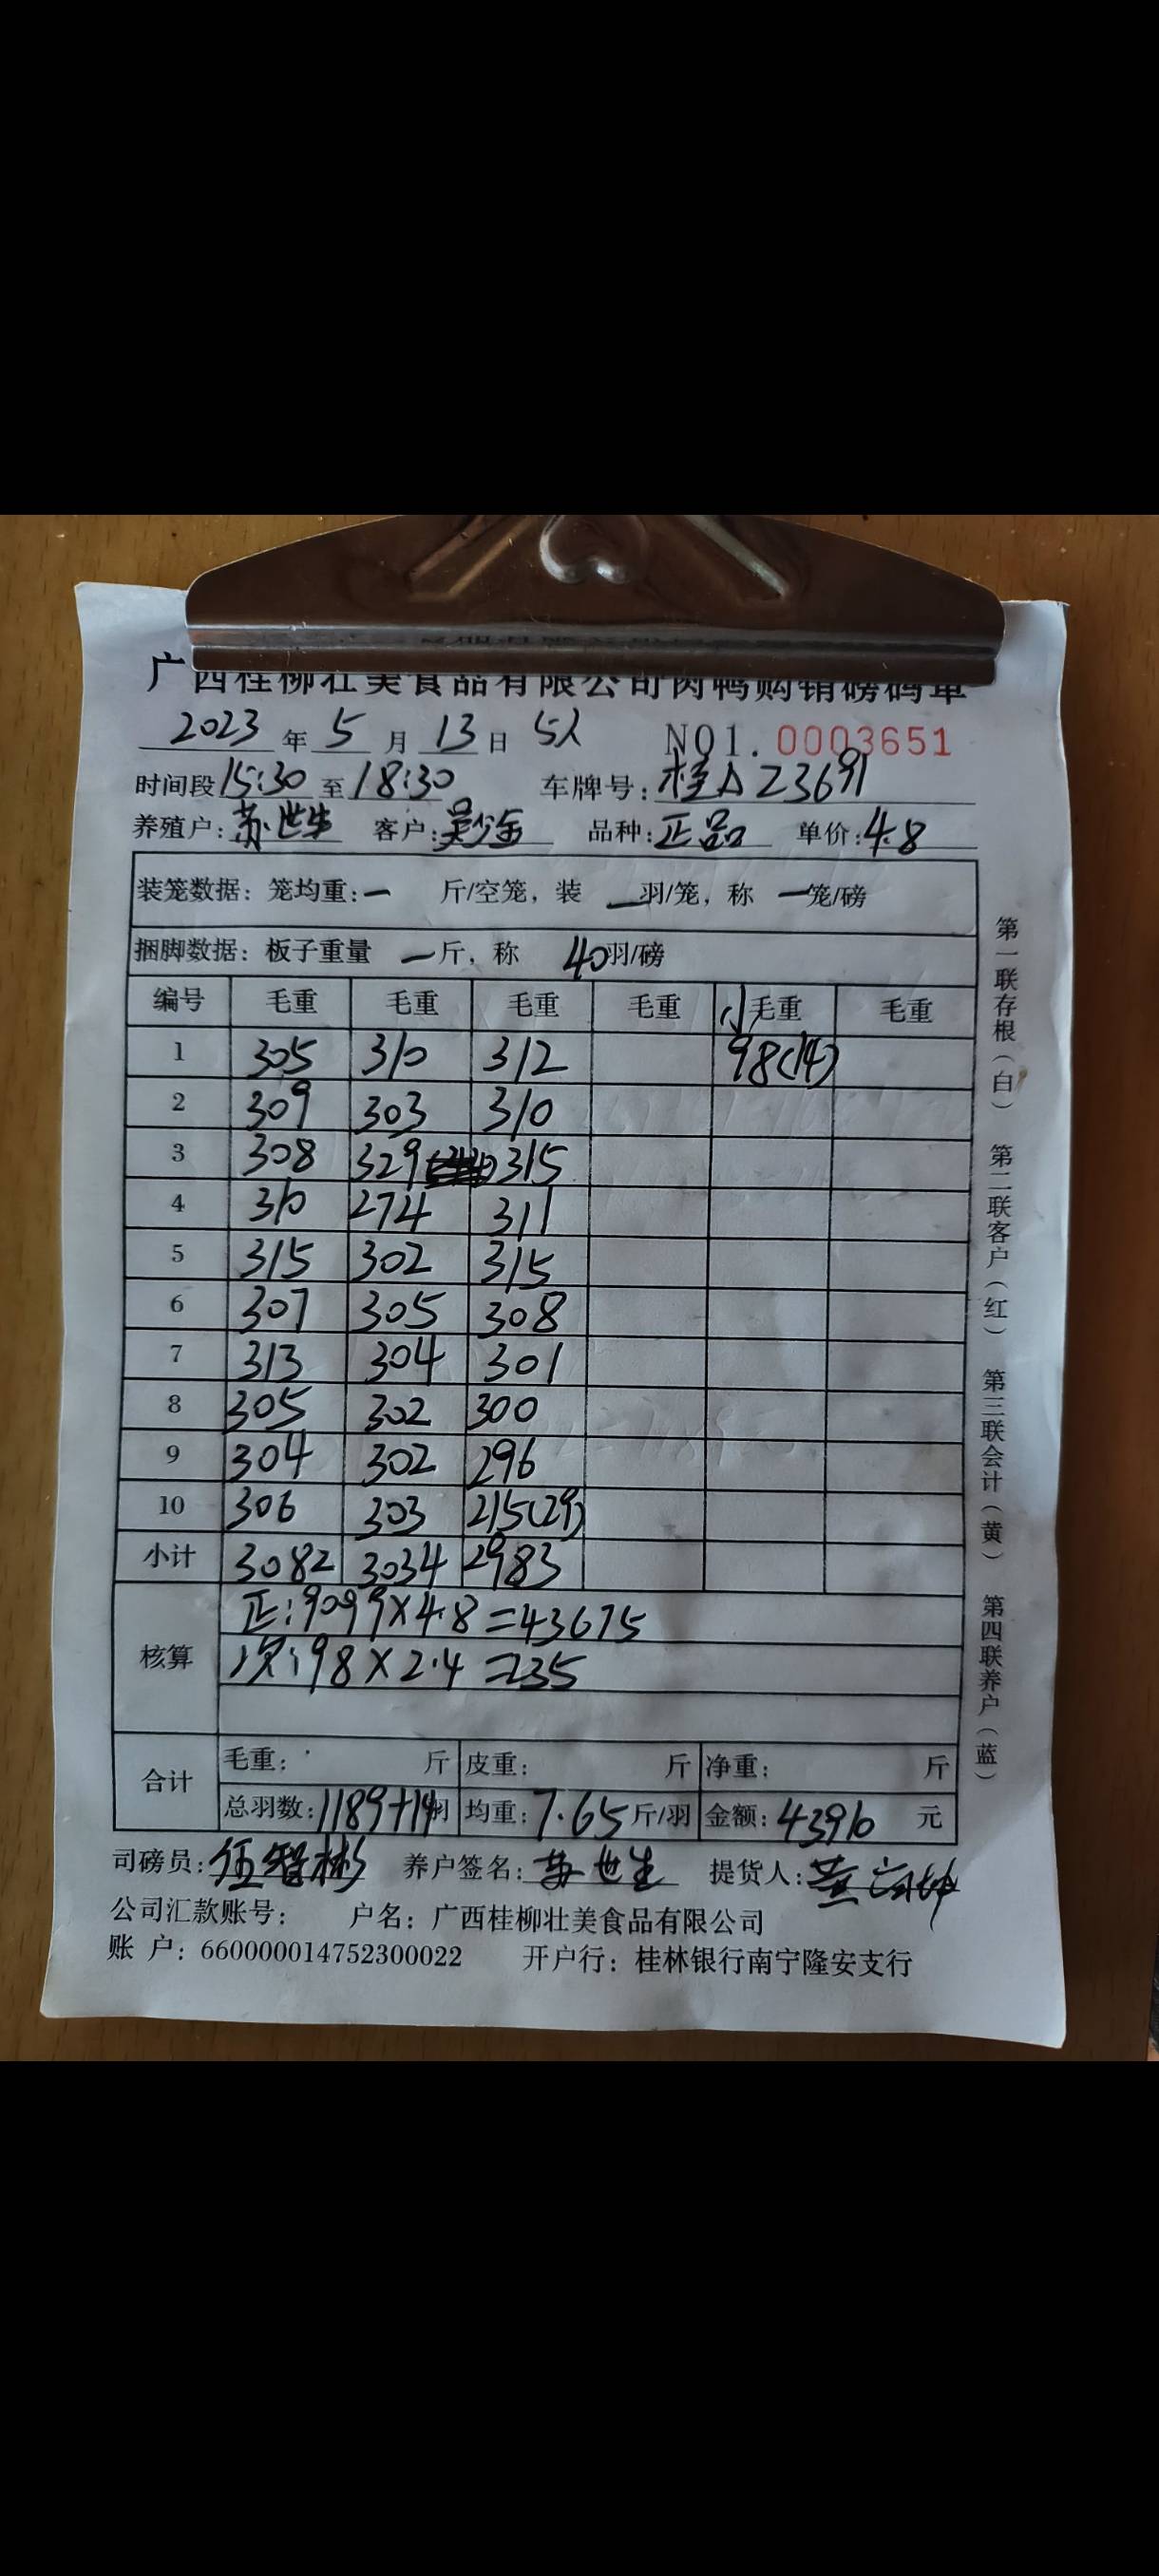 广西桂柳壮美食品有限公司肉鸭购销磅码单
2023年5月13日 5人 NO1. 0003651
时间段15:30至18:30 车牌号:桂A23691
养殖户:苏世生 客户: 品种:正品 单价:4.8
装笼数据:笼均重:一 斤/空笼,装 一羽/笼,称 一笼/磅
捆脚数据:板子重量 一斤,称 40羽/磅
编号 毛重 毛重 毛重 毛重 小毛重 毛重
1 305 310 312 98(14)
2 309 303 310
3 308 329 315
4 310 274 311
5 315 302 315
6 307 305 308
7 313 304 301
8 305 302 300
9 304 302 296
10 306 303 215(29)
小计 3082 3034 2983
核算 正:9099×4.8=43675
次:98×2.4=235
合计 毛重: 斤 皮重: 斤 净重: 斤
总羽数:1189+14羽 均重:7.65斤/羽 金额:43910 元
司磅员:伍智彬 养户签名:苏世生 提货人:
公司汇款账号: 户名:广西桂柳壮美食品有限公司
账 户:660000014752300022 开户行:桂林银行南宁隆安支行
第一联存根(白) 第二联客户(红) 第三联会计(黄) 第四联养户(蓝)